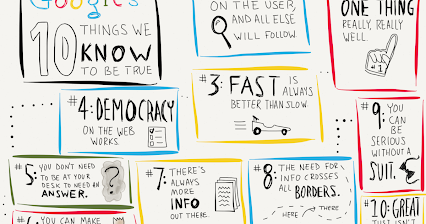 Google's
10 THINGS WE
KNOW
TO BE TRUE
ON THE USER,
AND ALL ELSE
WILL FOLLOW.
ONE THING
REALLY, REALLY
WELL.
#3: FAST IS
ALWAYS
BETTER THAN SLOW
#4: DEMOCRACY
ON THE WEB
WORKS.
#5: YOU DON'T NEED
TO BE AT YOUR
DESK TO NEED AN
ANSWER.
YOU CAN MAKE
#7: THERE'S
ALWAYS
MORE
INFO
OUT THERE.
#8: THE NEED FOR
INFO CROSSES
ALL BORDERS.
HERE THERE
#9: YOU
CAN
BE
SERIOUS
WITHOUT A
SUIT.
#10: GREAT
JUST ISN'T